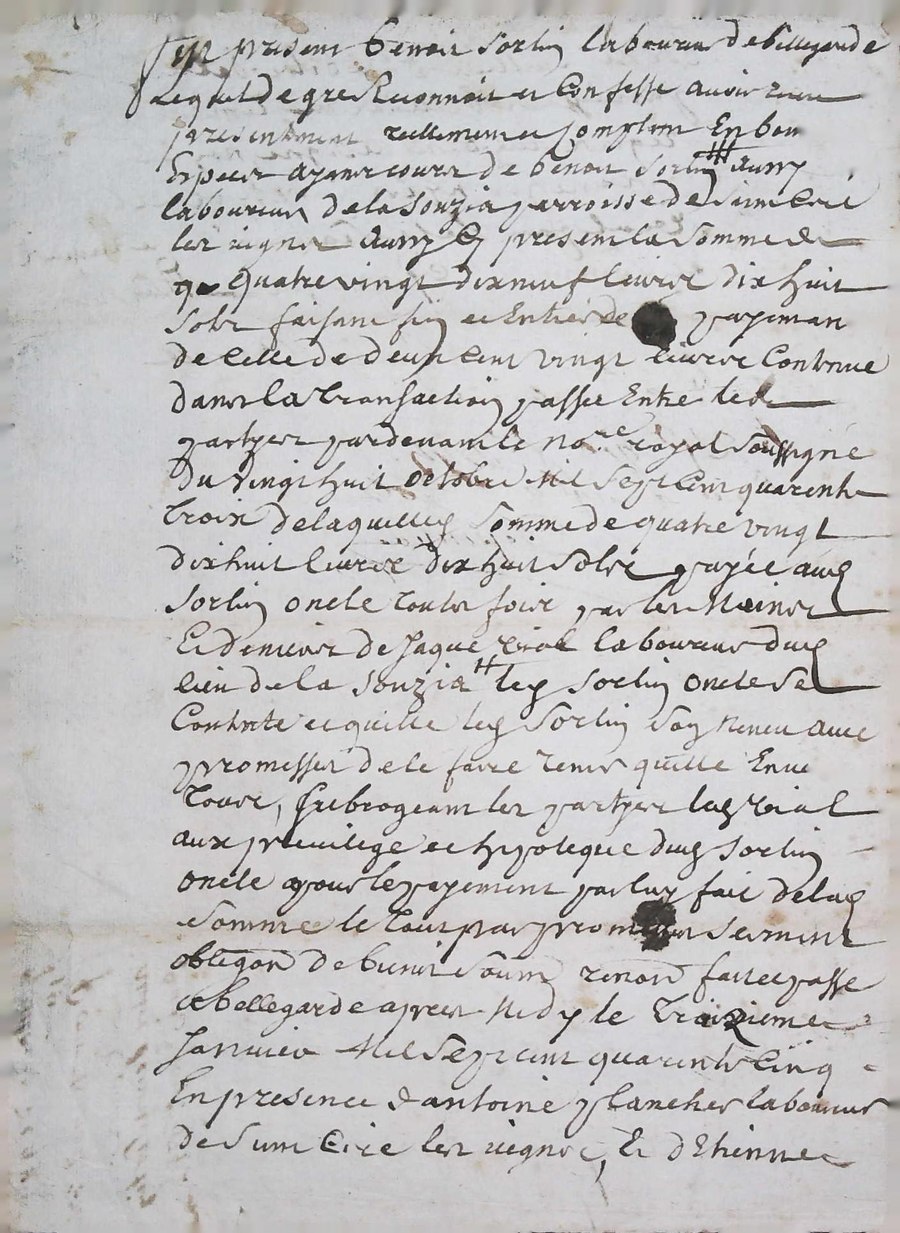 fut present benoit sorlin laboureur de bellegarde
Lequel de gre Reconnoit et Confesse avoir receu
presentement reellement et comptem En bon
Especes ayant cours de benoit sorlin aussy
laboureur de la Souzia parroisse de Saint Cire
les vignes aussy Cy present la Somme de
quatre vingt dix neuf livres dix huit
Sols faisant fin et Entier de payeman
de Celle de deux Cent vingt livres Contenue
dans la transaction passee Entre les
partyes pardevant le nore royal Soussigné
du vingt huit octobre Mil Sept Cent quarente
trois de laquelle Somme de quatre vingt
dix huit livres dix huit Sols payée aud
Sorlin oncle toutes fois par les Mains
Et deniers de Jaque rial laboureur dud
lieu de la Souzia led Sorlin oncle Se
Contente et quitte led Sorlin Son Neveu avec
promesses de le faire tenir quitte Envers
tous, Subrogeant les partyes led rial
aux privilege et hypoteque dud Sorlin
oncle pour le payement par luy fait de lad
Somme le tout par serment
obligaon de biens Soum renon fait et passe
a bellegarde apres Midy le troizieme
Janvier Mil Sept cent quarente Cinq
En presence d antoine plancher laboureur
de Saint Cire les vignes, Et d Etienne